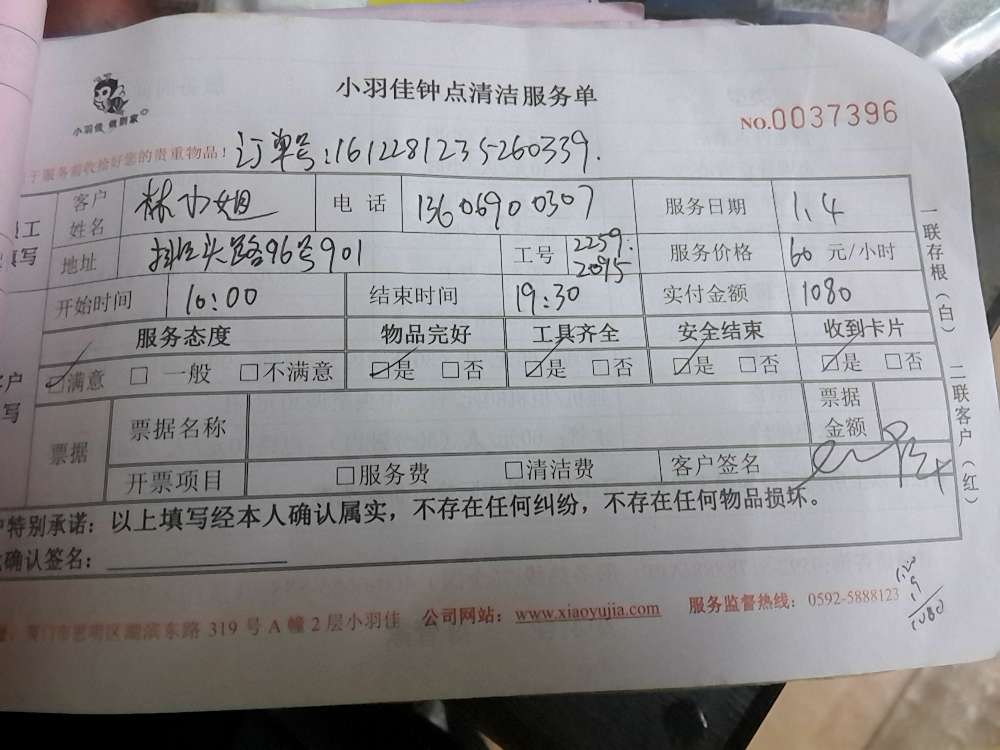 小羽佳钟点清洁服务单
小羽佳 做到家
NO.0037396
于服务前收拾好您的贵重物品！
订单号：1612281235260339.
员工 填写
客户姓名 林小姐 电话 13606900307 服务日期 1.4
地址 96号901 工号 2259. 2095 服务价格 60 元/小时
开始时间 10:00 结束时间 19:30 实付金额 1080
服务态度 物品完好 工具齐全 安全结束 收到卡片
☑满意 □ 一般 □不满意 ☑是 □否 ☑是 □否 ☑是 □否 ☑是 □否
票据 票据名称 票据金额
开票项目 □服务费 □清洁费 客户签名
户特别承诺：以上填写经本人确认属实，不存在任何纠纷，不存在任何物品损坏。
确认签名：
一联存根（白） 二联客户（红）
厦门市思明区湖滨东路 319 号 A 幢 2 层小羽佳 公司网站：www.xiaoyujia.com 服务监督热线：0592-5888123
120
.9
1080